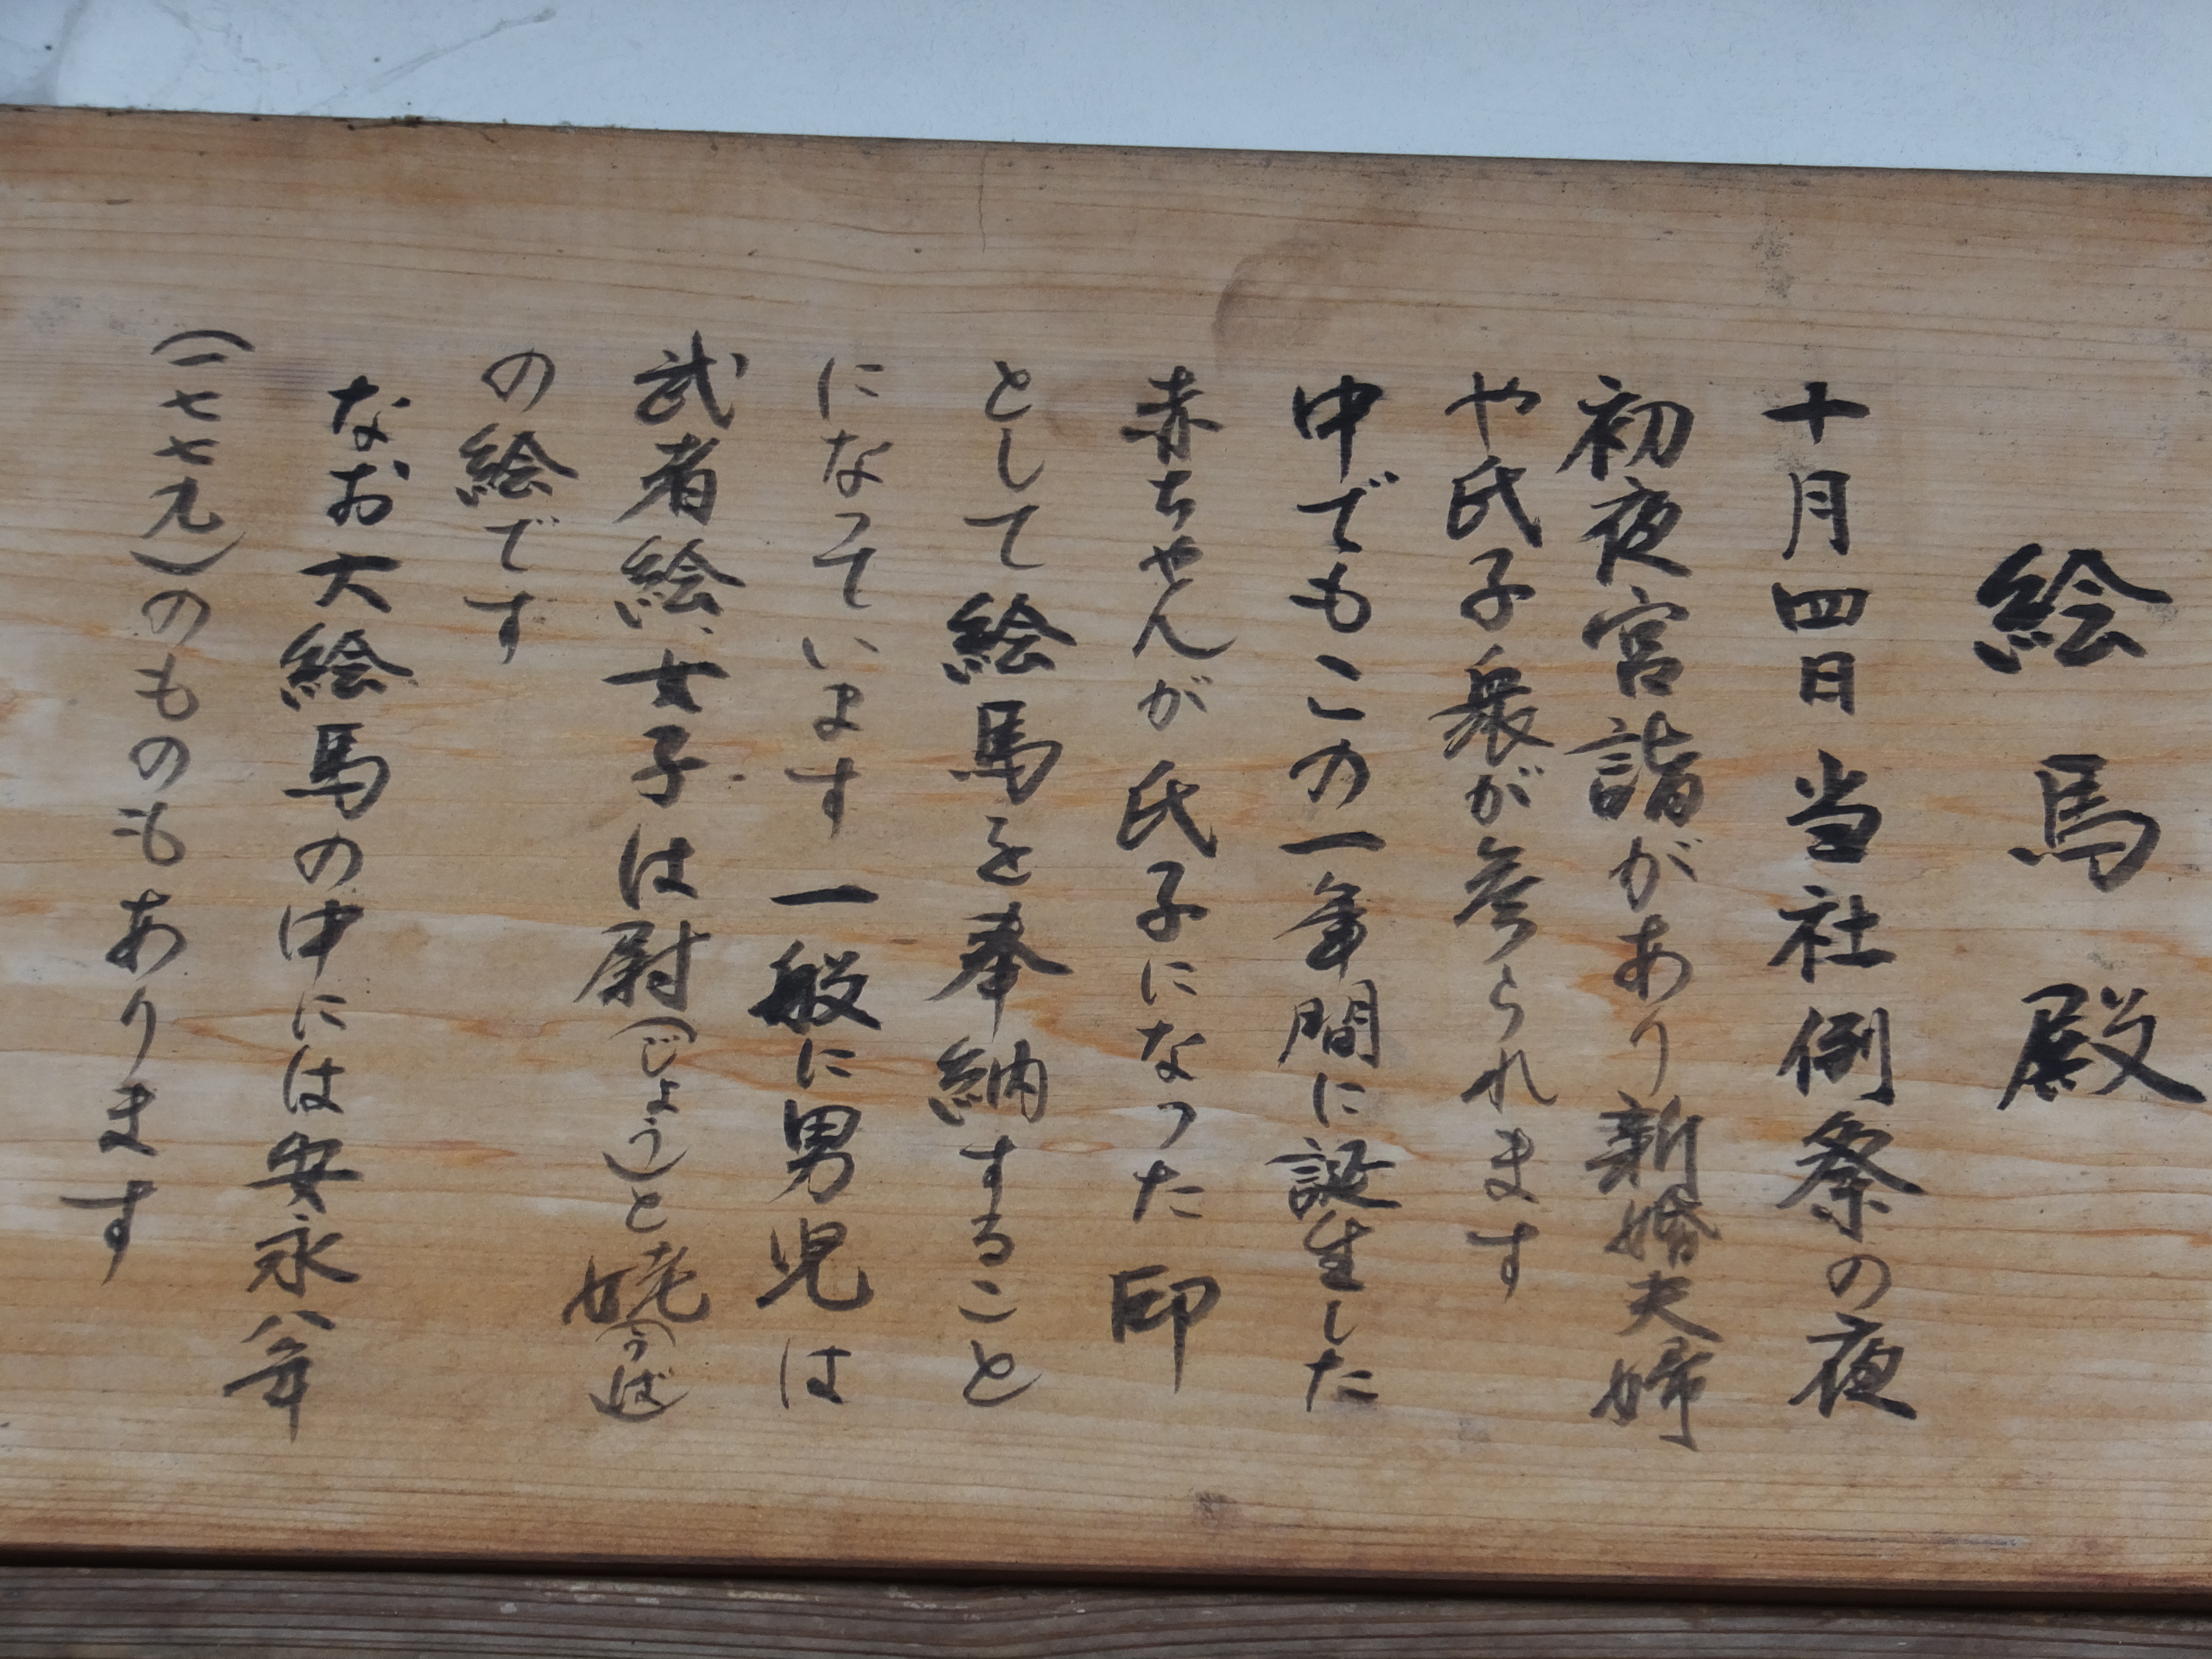 絵馬殿
十月四日当社例祭の夜
初夜宮詣があり新婚夫婦
や氏子衆が参られます
中でもこの一年間に誕生した
赤ちゃんが氏子になった印
として絵馬を奉納すること
になっています一般に男児は
武者絵、女子は尉(じょう)と姥(うば)
の絵です
なお大絵馬の中には安永八年
(一七七九)のものもあります